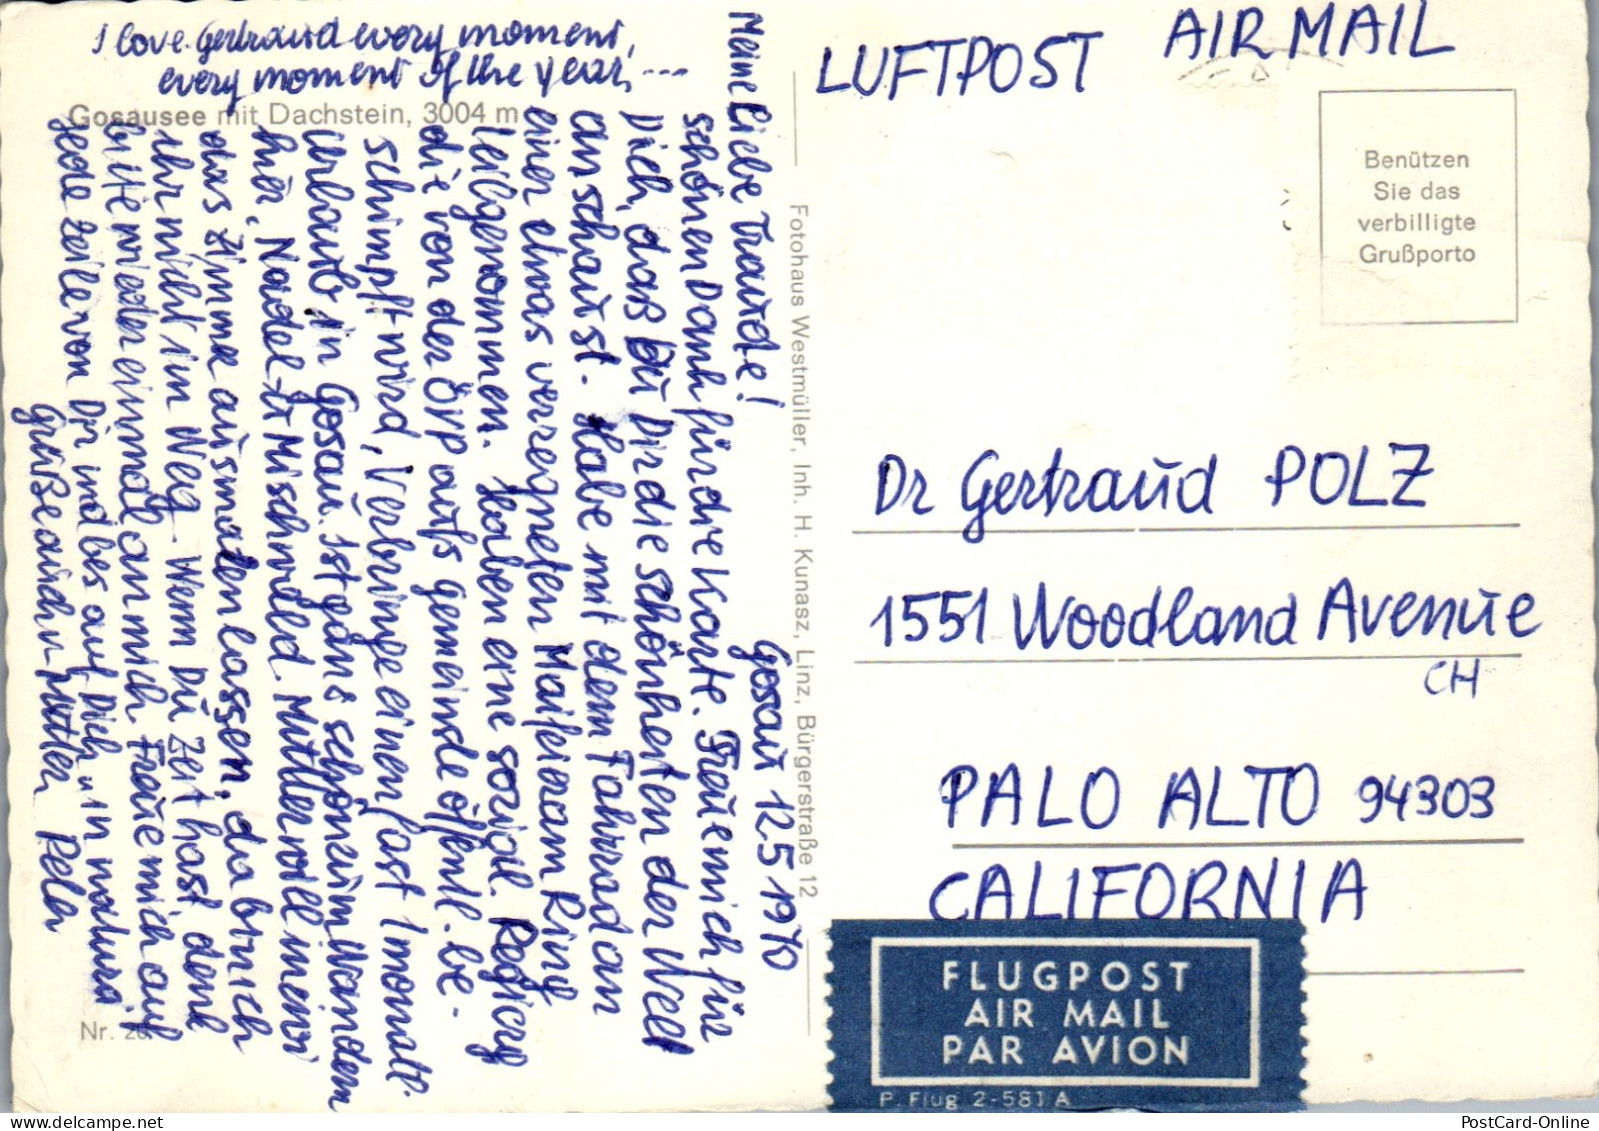 I love Gertraud every moment,
every moment of the year, ---
Gosausee mit Dachstein, 3004 m
Gosau 12.5.1970
Meine liebe Traude!
schönen Dank für die Karte. Freue mich für
Dich, daß Du Dir die Schönheiten der Welt
anschaust. Habe mit dem Fahrrad an
einer etwas verregneten Maifeier am Ring
teilgenommen. Haben eine sozial. Regierg
die von der ÖVP aufs gemeinste öffentl. be-
schimpft wird, Verbringe einen fast 1 monatl.
Urlaub in Gosau. Ist ganz schön zum Wandern
hier, Nadel- u Mischwald. Mutter will mein
das Zimmer ausmalen lassen, da bin ich
ihr nicht im Weg. Wenn Du Zeit hast, denk
bitte wieder einmal an mich. Freue mich auf
jede Zeile von Dir und bes auf Dich "in natura
Grüße auch v. Mutter Peter
Nr. 20
Fotohaus Westmüller, Inh. H. Kunasz, Linz, Bürgerstraße 12
LUFTPOST AIR MAIL
Benützen
Sie das
verbilligte
Grußporto
Dr Gertraud POLZ
1551 Woodland Avenue
CH
PALO ALTO 94303
CALIFORNIA
FLUGPOST
AIR MAIL
PAR AVION
P. Flug 2-581 A
PostCard-Online